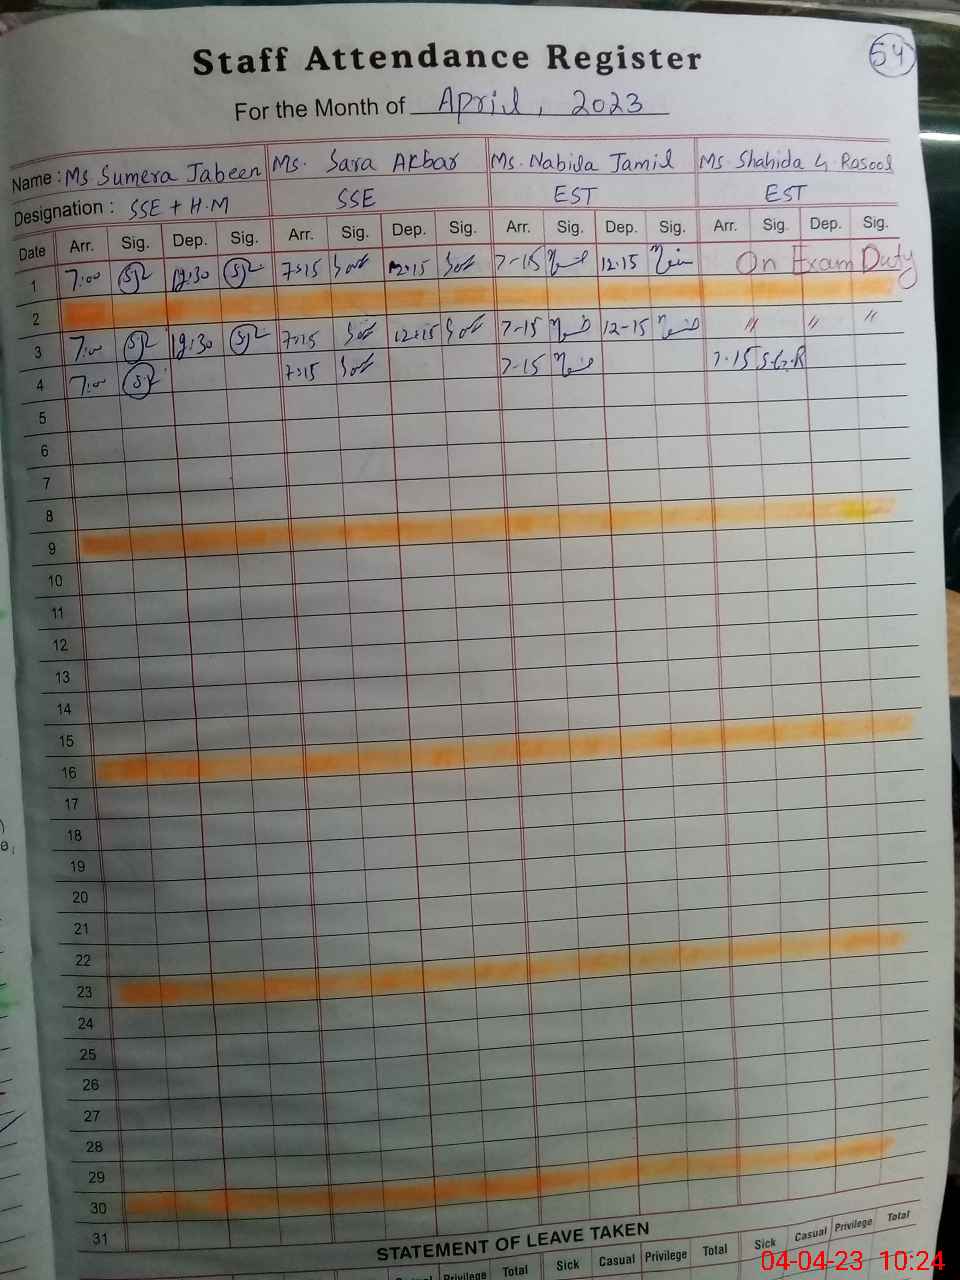 54
Staff Attendance Register
For the Month of April, 2023
Name : Ms Sumera Jabeen Ms. Sara Akbar Ms. Nabila Jamil Ms. Shahida G Rasool
Designation : SSE + H.M SSE EST EST
Date Arr. Sig. Dep. Sig. Arr. Sig. Dep. Sig. Arr. Sig. Dep. Sig. Arr. Sig. Dep. Sig.
1 7:00 12:30 7:15 12:15 7-15 12.15 On Exam Duty
2
3 7:00 12:30 7:15 12:15 7-15 12-15 " " "
4 7:00 7:15 7-15 7-15 S.G.R
5
6
7
8
9
10
11
12
13
14
15
16
17
18
19
20
21
22
23
24
25
26
27
28
29
30
31
STATEMENT OF LEAVE TAKEN
Privilege Total Sick Casual Privilege Total Sick Casual Privilege Total
04-04-23 10:24